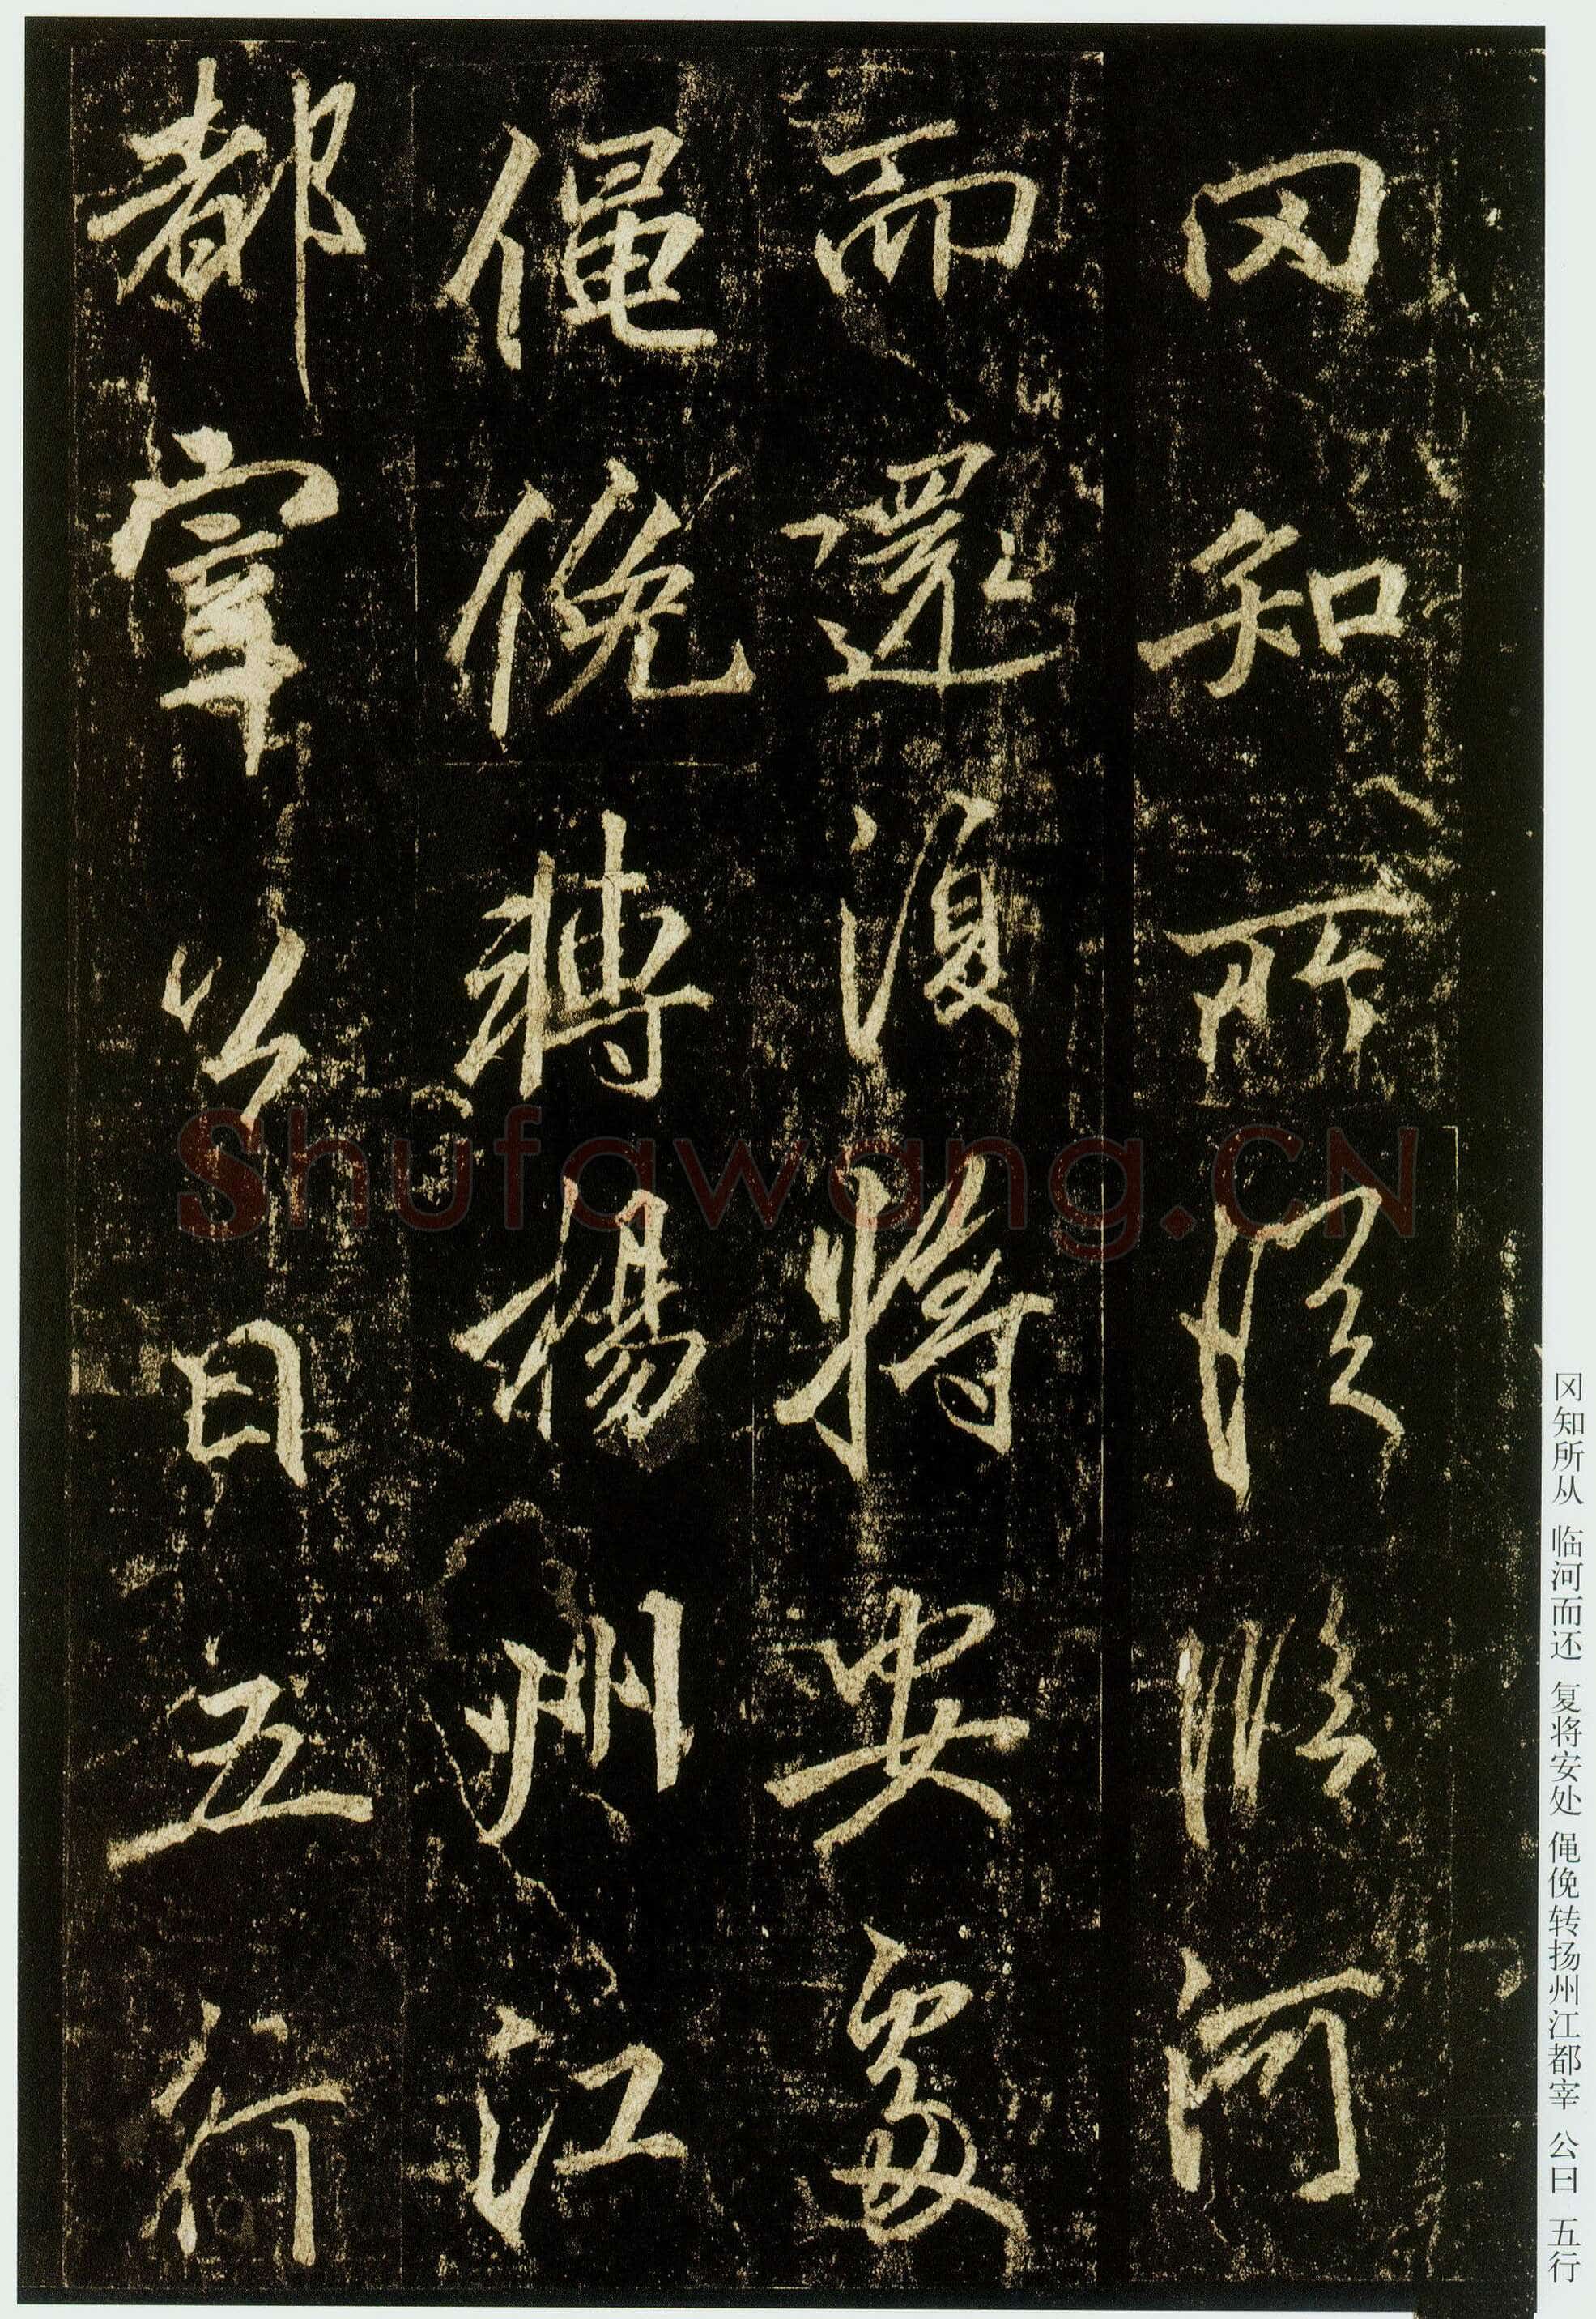 罔知所從臨河
而還復將安處
僶俛轉楊州江
都宰公曰五行
冈知所从 临河而还 复将安处 僶俛转扬州江都宰 公曰 五行
Shufawang.CN